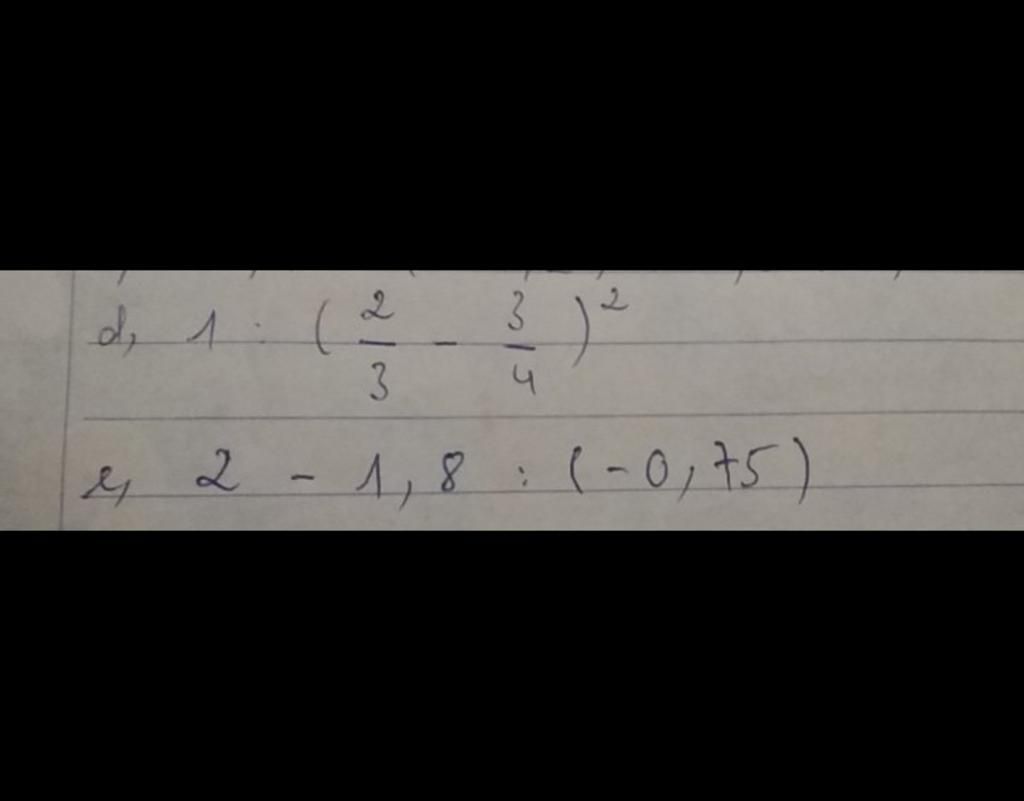 d, 1 : (2/3 - 3/4)²
e, 2 - 1,8 : (-0,75)